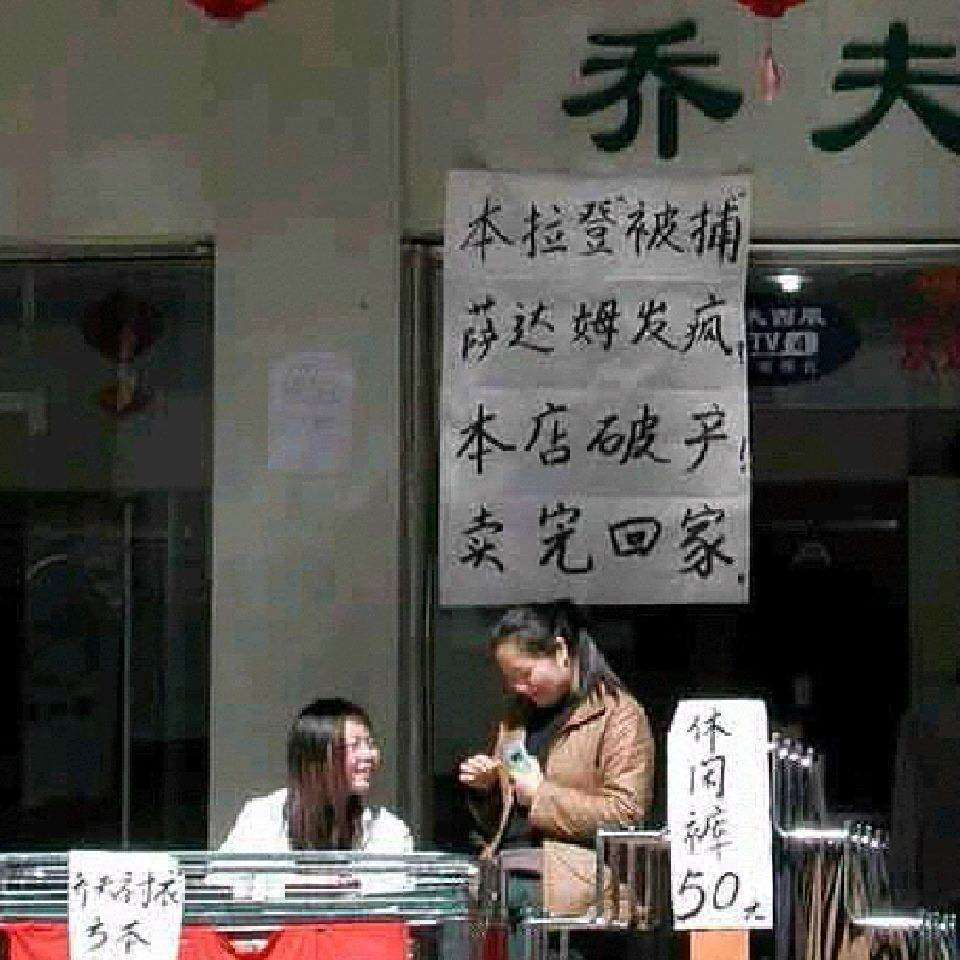 乔夫
本拉登被捕
萨达姆发疯,
本店破产!
卖完回家.
TV
休
闲
裤
50
乔夫衬衣